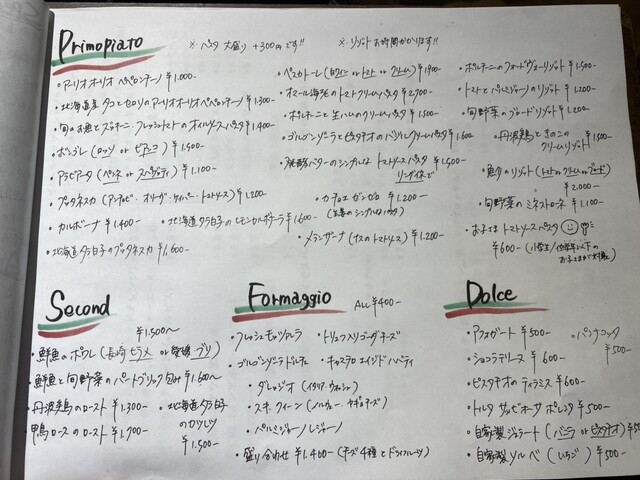 Primopiato
※ パスタ 大盛り +300円です!!
※ リゾット お時間かかります!!
・アーリオオーリオ ペペロンチーノ ¥1.000-
・北海道産 タコとセロリのアーリオオーリオペペロンチーノ ¥1.300-
・旬のお魚とズッキーニ、フレッシュトマトのオイルソースパスタ ¥1.400-
・ボンゴレ (ロッソ or ビアンコ) ¥1.500-
・アラビアータ (ペンネ or スパゲッティ) ¥1.100-
・プッタネスカ (アンチョビ・オリーブ・ケイパー・トマトソース) ¥1.200-
・カルボナーラ ¥1.400-
・北海道タラ白子のレモンカルボナーラ ¥1.600-
・北海道タラ白子のプッタネスカ ¥1.600-
・ペスカトーレ (ビアンコ or トマト or クリーム) ¥1.900-
・オマール海老のトマトクリームパスタ ¥2.700-
・ポルチーニと生ハムのクリームパスタ ¥1.500-
・ゴルゴンゾーラとピスタチオのクリームパスタ ¥1.600
・発酵バターのシンプルな トマトソースパスタ ¥1.500-
リングイネで
・カチョエ ペペ ¥1.200-
・メランザーナ (ナスのトマトソース) ¥1.200-
・ポルチーニのフォンドヴォーリゾット ¥1.500-
・トマトとパルミジャーノのリゾット ¥1.200
・旬野菜のブロードリゾット ¥1.200-
・丹波鶏ときのこの クリームリゾット ¥1.500-
・魚介のリゾット (トマト or クリーム or ブロード)
¥2.000-
・旬野菜のミネストローネ ¥1.100-
・お子さまトマトソースパスタ
¥600- (小学生/低学年以下のお子さままで対象)
Second
¥1.500~
・鮮魚のポワレ (長崎 ヒラメ or 愛媛 ブリ)
・鮮魚と旬野菜のパートブリック包み ¥1.600~
・丹波鶏のロースト ¥1.300-
・鴨ロースのロースト ¥1.700-
・北海道タラ白子
のカツレツ
¥1.500-
Formaggio
ALL ¥400-
・フレッシュモッツァレラ
・トリュフ入りゴーダチーズ
・ゴルゴンゾーラドルチェ
・キャステロ エイジドハバティ
・タレッジオ (イタリア・ウォッシュ)
・スキィクイーン (ノルウェー・ヤギのチーズ)
・パルミジャーノレジャーノ
・盛り合わせ ¥1.400- (チーズ4種とドライフルーツ)
Dolce
・アフォガート ¥500-
・パンナコッタ
¥500-
・ショコラテリーヌ ¥600-
・ピスタチオのティラミス ¥600-
・トルタ サッビオーサ ポレンタ ¥500-
・自家製ジェラート (バニラ or ピスタチオ) ¥5
・自家製ソルベ (いちご) ¥500-